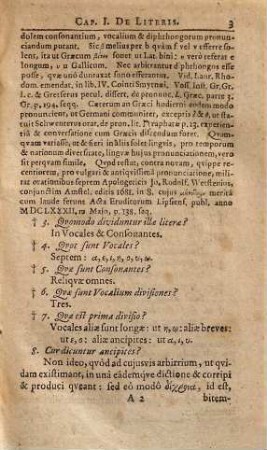 CAP. I. DE LITERIS. 3
dolem consonantium, vocalium & diphthongorum pronun-
ciandum putant. Sic σ melius per b quàm f vel v efferre so-
lent, ita ut Græcum sonet ut Lat. bini: υ verò referat e
longum, u Gallicum. Nec arbitrantur diphthongos esse
posse, quæ unò duntaxat sonò efferantur. Vid. Laur. Rho-
dom. emendat. in lib. IV. Cointi Smyrnæi. Voss. Inst. Gr. Gr.
L. c. & Gretserus persi. dissert. de pronunc. L. Græc. parte 3.
Gr. p. 194. seqq. Cæterum an Græci hodierni eodem modo
pronuncient, ut Germani communiter, exceptis & υ, ut
stant Schrœterus orat. de pron. litt. p. 13. experien-
tia & conversatione cum Græcis discendum foret. Quam-
quam variatio, ut & fieri in aliis solet lingvis, pro tempo-
rum & nationum diversitate, lingvæ hujus pronunciationem, vero
sit perquam simile. Quod restat, contra novam, quippe re-
centiorem, pro vulgari & antiqvissimâ pronunciatione,
militat eruditissimi septem Apologeticis Jo. Rudolf. Westenius,
conjunctim Amstel. editis 1681. in S. cujus meritâ cum
laude fertus est Eruditorum Lipsiens. publ. anno
MDCLXXXII. m Majo, p. 138. seqq.
† 3. Quomodo dividuntur illa literæ?
In Vocales & Consonantes.
† 4. Quot sunt Vocales?
Septem: α, ε, ι, η, ο, υ, ω.
† 5. Quæ sunt Consonantes?
Reliqvæ omnes.
† 6. Quæ sunt Vocalium divisiones?
Tres.
† 7. Quæ est prima divisio?
Vocales aliæ sunt longæ: ut η, ω: aliæ breves:
ut ε, ο: aliæ ancipites: ut α, ι, υ.
8. Cur dicuntur ancipites?
Non ideo, qvòd ad cujusvis arbitrium, ut qvi-
dam existimant, in unâ eâdemqve dictione & corripi
& produci qveant: sed eò modô, id est,
A 2 bitem-